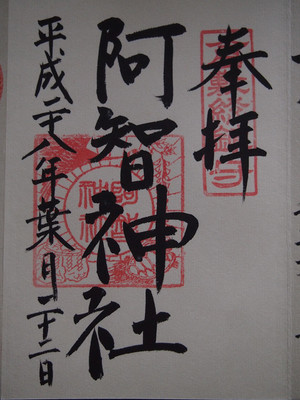 奉拝
阿智神社
平成二十八年葉月二十二日